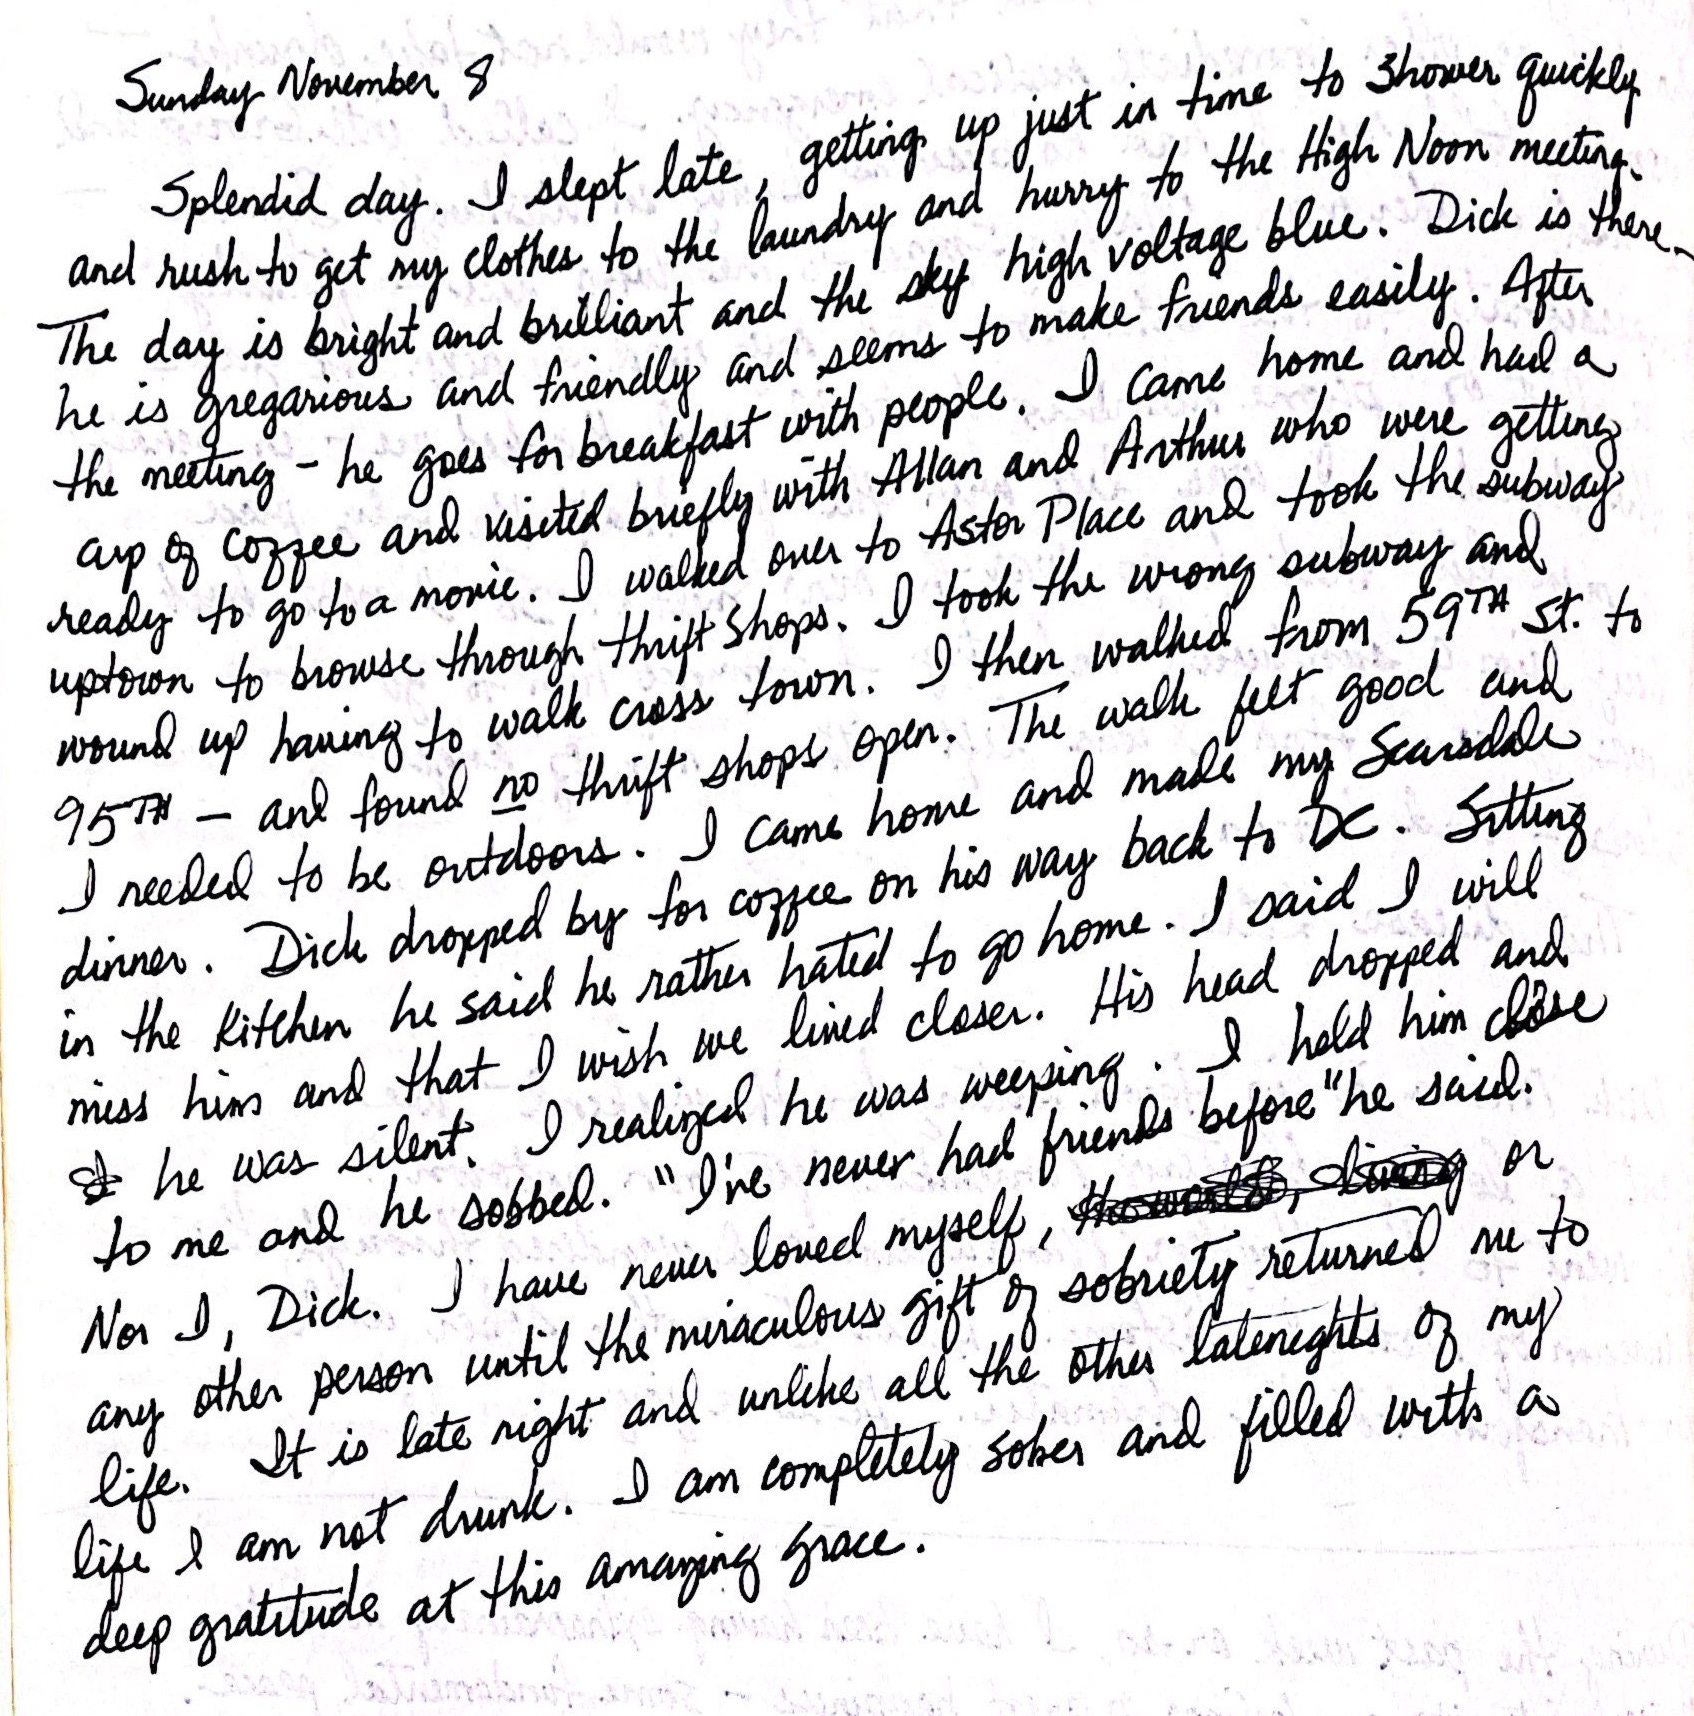 Sunday November 8
Splendid day. I slept late, getting up just in time to shower quickly
and rush to get my clothes to the laundry and hurry to the High Noon meeting.
The day is bright and brilliant and the sky high voltage blue. Dick is there –
he is gregarious and friendly and seems to make friends easily. After
the meeting – he goes for breakfast with people. I came home and had a
cup of coffee and visited briefly with Allan and Arthur who were getting
ready to go to a movie. I walked over to Astor Place and took the subway
uptown to browse through thrift shops. I took the wrong subway and
wound up having to walk cross town. I then walked from 59TH St. to
95TH – and found no thrift shops open. The walk felt good and
I needed to be outdoors. I came home and made my Scarsdale
dinner. Dick dropped by for coffee on his way back to DC. Sitting
in the kitchen he said he rather hated to go home. I said I will
miss him and that I wish we lived closer. His head dropped and
he was silent. I realized he was weeping. I held him close
to me and he sobbed. "I've never had friends before" he said.
Nor I, Dick. I have never loved myself, or
any other person until the miraculous gift of sobriety returned me to
life. It is late night and unlike all the other latenights of my
life I am not drunk. I am completely sober and filled with a
deep gratitude at this amazing grace.